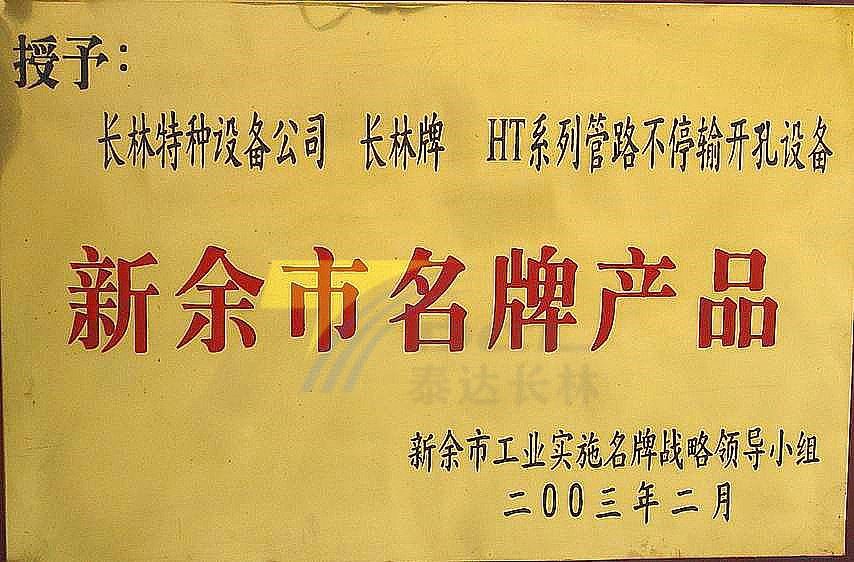 授予:
长林特种设备公司 长林牌 HT系列管路不停输开孔设备
新余市名牌产品
泰达长林
新余市工业实施名牌战略领导小组
二00三年二月